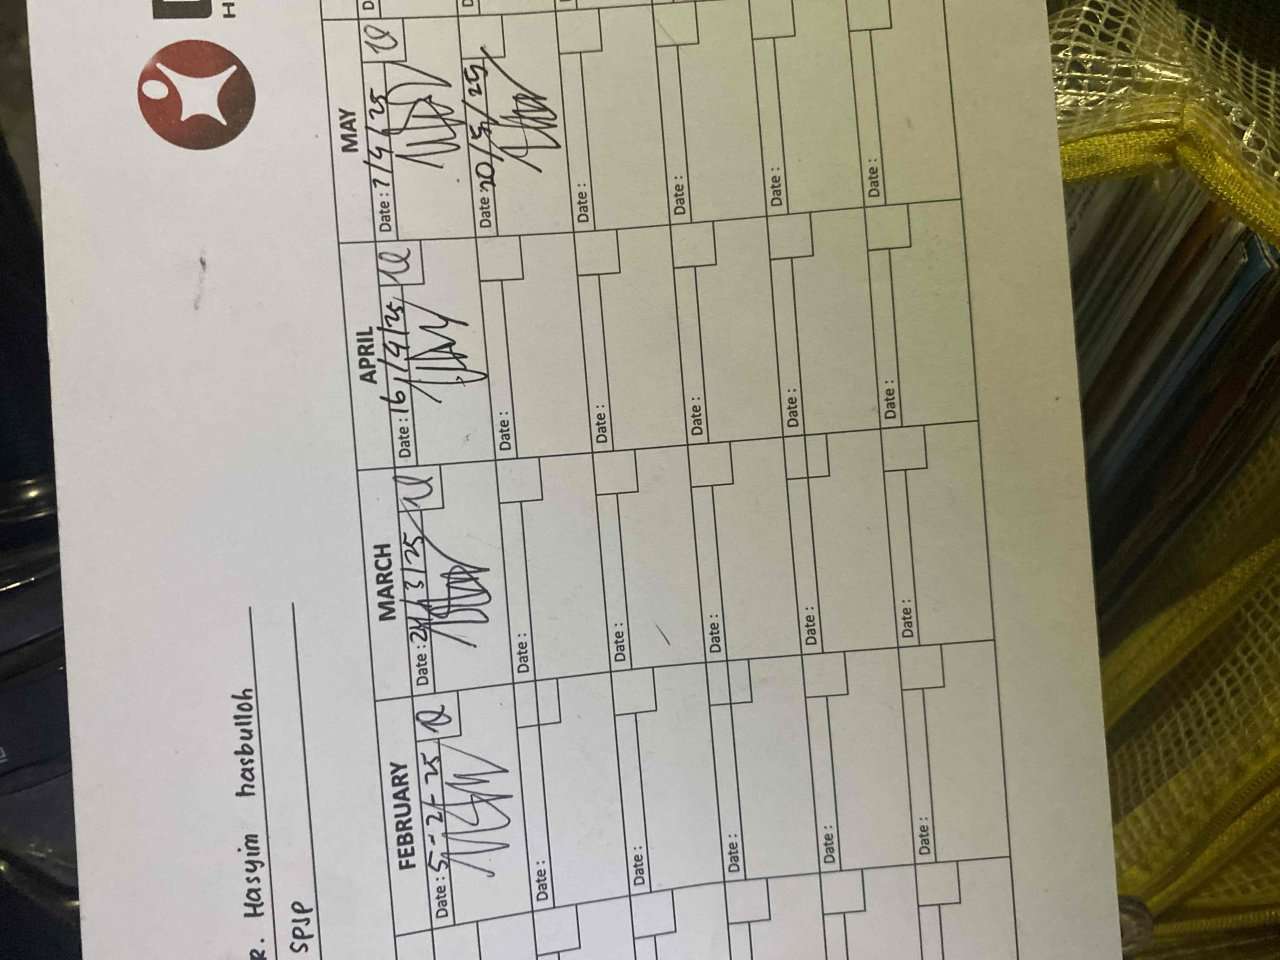 R. Hasyim hasbulloh
SPJP
FEBRUARY MARCH APRIL MAY
Date : 5-2-25 Date : 24/3/25 Date : 16/4/25 Date : 7/5/25
Date : Date : Date : Date : 20/5/25
Date : Date : Date : Date :
Date : Date : Date : Date :
Date : Date : Date : Date :
Date : Date : Date : Date :